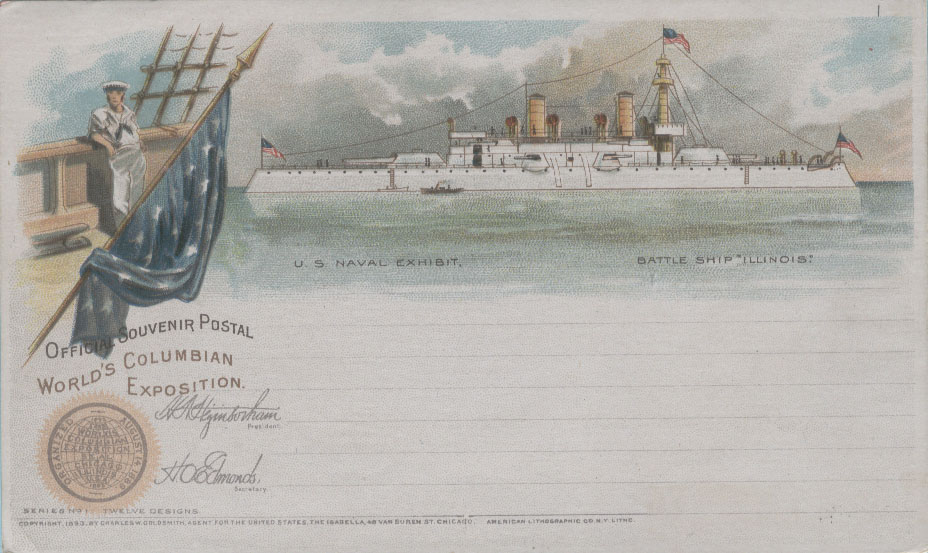 U. S. NAVAL EXHIBIT.
BATTLE SHIP "ILLINOIS".
OFFICIAL SOUVENIR POSTAL
WORLD'S COLUMBIAN
EXPOSITION.
President.
Secretary.
ORGANIZED AUGUST 14, 1889
WORLD'S COLUMBIAN EXPOSITION CHICAGO
SERIES No 1. TWELVE DESIGNS.
COPYRIGHT, 1893, BY CHARLES W. GOLDSMITH, AGENT FOR THE UNITED STATES, THE ISABELLA, 48 VAN BUREN ST. CHICAGO. AMERICAN LITHOGRAPHIC CO. N.Y. LITHO.